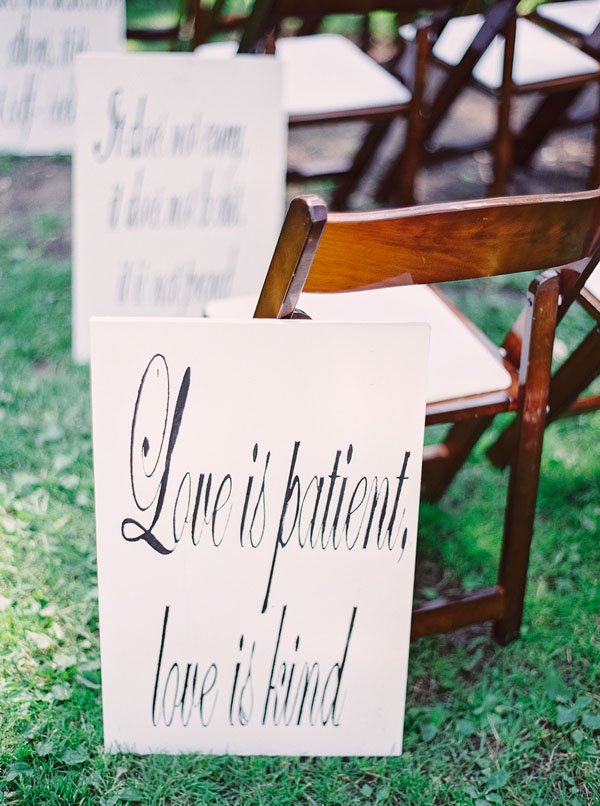 Love is patient,
love is kind
It does not envy,
it does not boast,
it is not proud